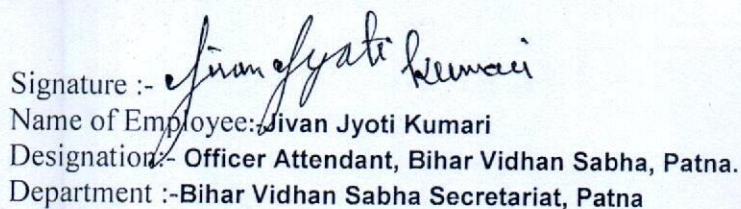 Signature :- Jivan Jyoti Kumari
Name of Employee:-Jivan Jyoti Kumari
Designation:- Officer Attendant, Bihar Vidhan Sabha, Patna.
Department :-Bihar Vidhan Sabha Secretariat, Patna